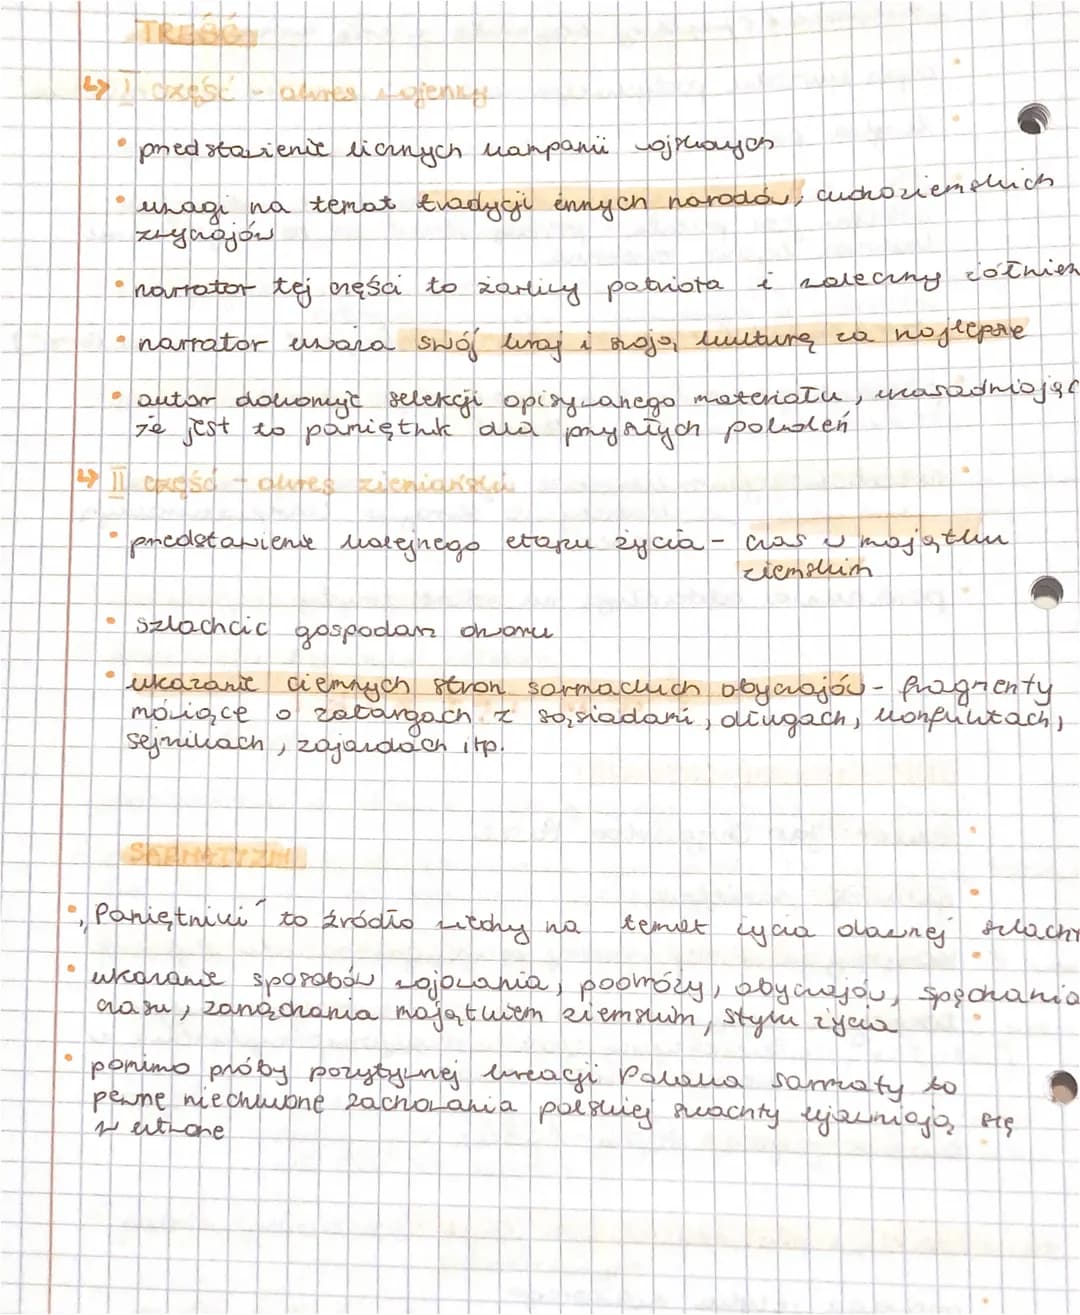 TREŚĆ
↳ I część - okres wojenny
• przedstawienie licznych kampanii wojskowych
• uwagi na temat tradycji innych narodów, cudzoziemskich
zwyczajów
• narrator tej części to żarliwy patriota i waleczny żołnierz
• narrator uważa swój kraj i swoją kulturę za najlepsze
• autor dokonuje selekcji opisywanego materiału, uzasadniając
że jest to pamiętnik dla przyszłych pokoleń
↳ II część - okres ziemiański
• przedstawienie kolejnego etapu życia - czas w majątku
ziemskim
• szlachcic gospodarz dworu
• ukazanie ciemnych stron sarmackich obyczajów - fragmenty
mówiące o zatargach z sąsiadami, długach, konfliktach,
sejmikach, zajazdach itp.
SARMATYZM
• „Pamiętniki" to źródło wiedzy na temat życia dawnej szlachty
• ukazanie sposobów wojowania, podróży, obyczajów, spędzania
czasu, zarządzania majątkiem ziemskim, stylu życia
• pomimo próby pozytywnej kreacji Polaka sarmaty to
pewne niechlubne zachowania polskiej szlachty ujawniają się
w utworze